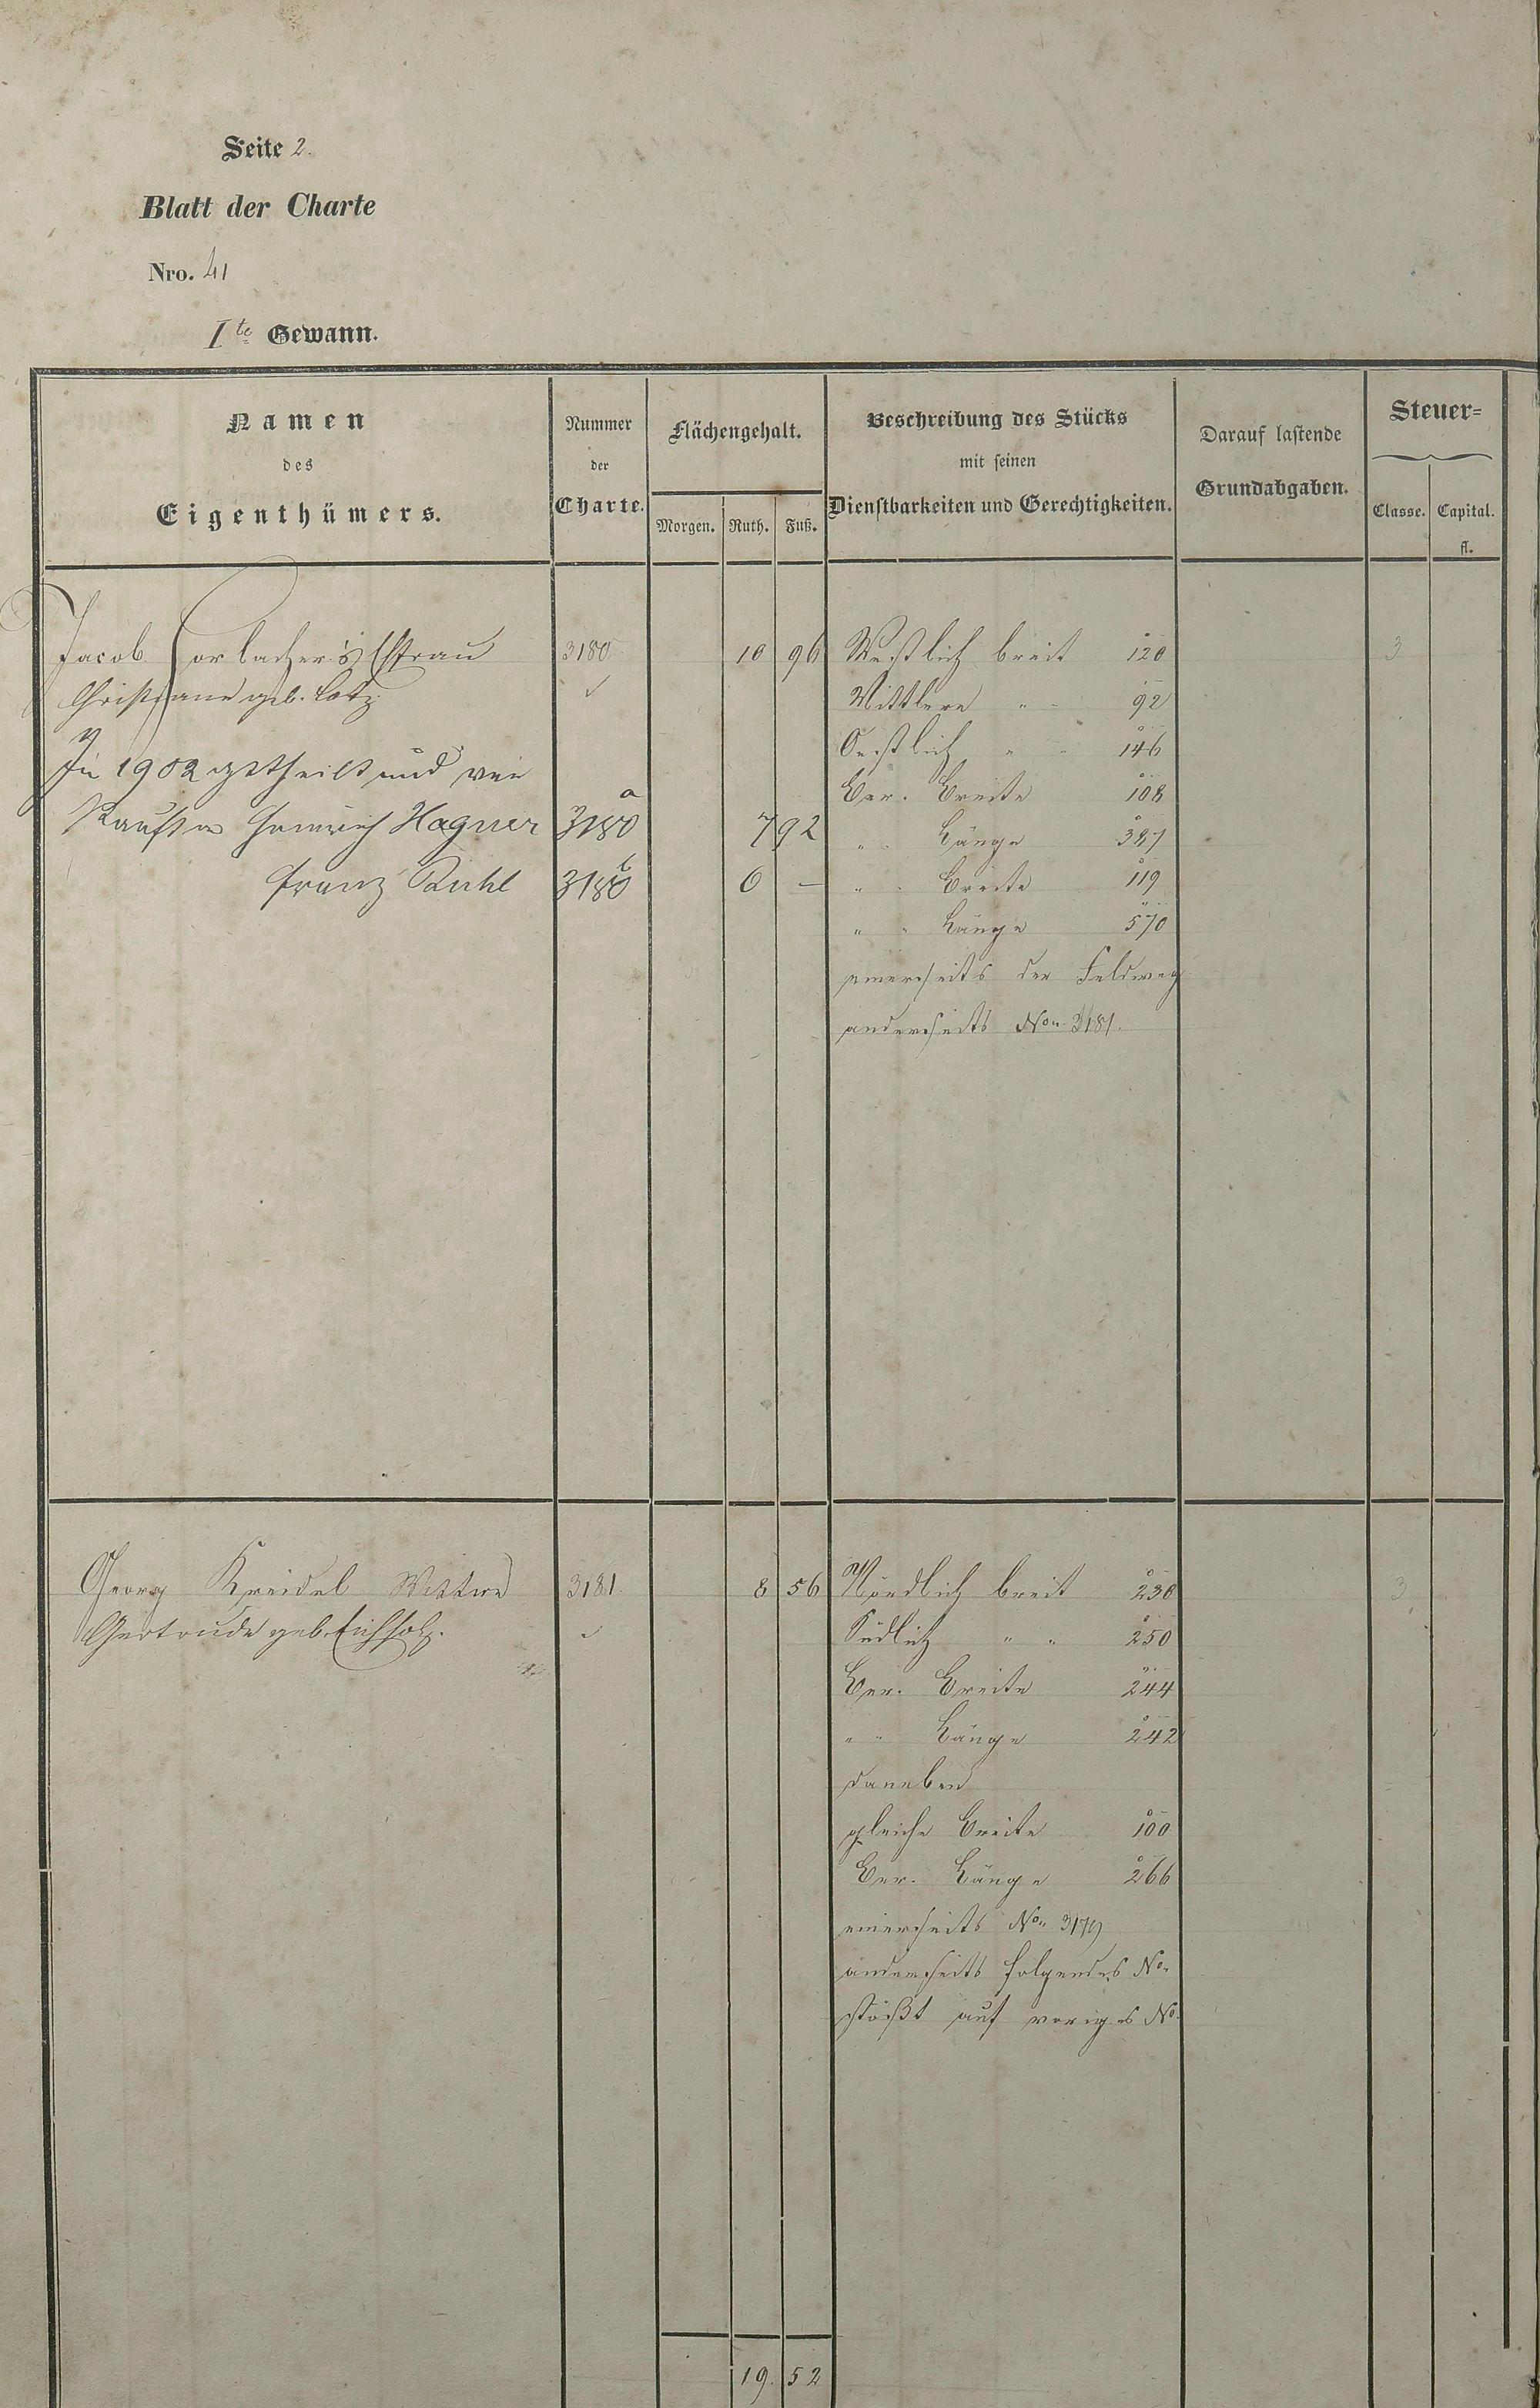 Seite 2.
Blatt der Charte
Nro. 41
Ite Gewann.
Namen
des
Eigenthümers.
Nummer
der
Charte.
Flächengehalt.
Morgen. Ruth. Fuß.
Beschreibung des Stücks
mit seinen
Dienstbarkeiten und Gerechtigkeiten.
Darauf lastende
Grundabgaben.
Steuer=
Classe. Capital.
fl.
Jacob Gorlacher's Ehfrau 3180 10 96 Westlich breit 120 3
Christiane geb. Lotz ✓ Mittlere " " 92
Oestlich " " 146
In 1902 getheilt und Ber. Breite 108
Heinrich Hagner 3180 a 7 92 " " Länge 387
Franz Ruhl 3180 b 6 — " " Breite 119
" " Länge 570
einerseits der Feldweg
anderseits No. 3181.
Georg Kreidel Wittwe 3181. 8 56 Nördlich breit 230 3
Gertrude geb. Eichholz. ✓ Südlich " " 250
Ber. Breite 244
" " Länge 242
daneben
gleiche Breite 100
Ber. Länge 266
einerseits No. 3179
anderseits folgendes No.
stößt auf voriges No.
19. 52